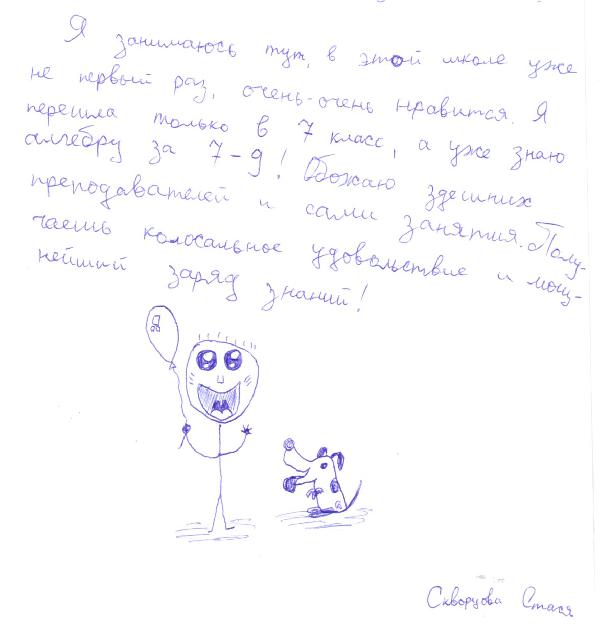 Я занимаюсь тут, в этой школе уже
не первый раз, очень-очень нравится. Я
перешла только в 7 класс, а уже знаю
алгебру за 7-9! Обожаю здешних
преподавателей и сами занятия. Полу-
чаешь колосальное удовольствие и мощ-
нейший заряд знаний!
Скворцова Стася